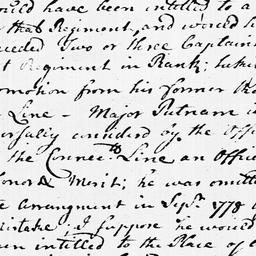 would have been intitled to a
that Regiment, and would
ceeded Two or three Captains
Regiment in Rank;
omotion from his former
Line - Major Putnam i
versally considered by the Offi
the Connectt. Line an Office
onor & Merit; he was omitte
e Arrangment in Sept. 1778
istake; I suppose he would
een intitled to the Place of